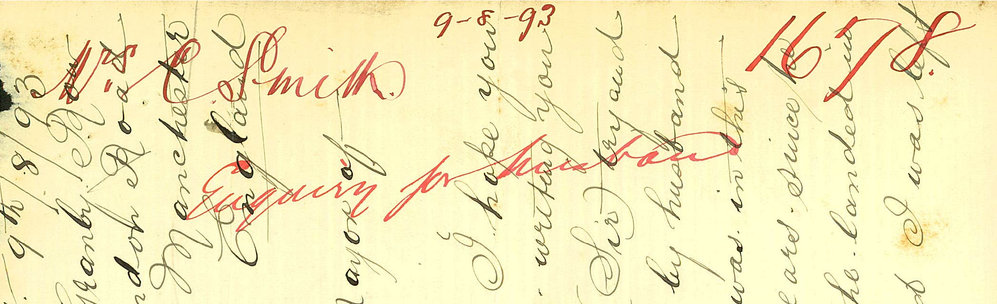 9-8-93
1678.
Mrs C Smith.
Enquiry for husband
9th/8/93
Granby Row
Road
Manchester
England
Mayor of
I hope you
writing you
Sir) try and
by husband
was in this
years since he
he landed in
I was left